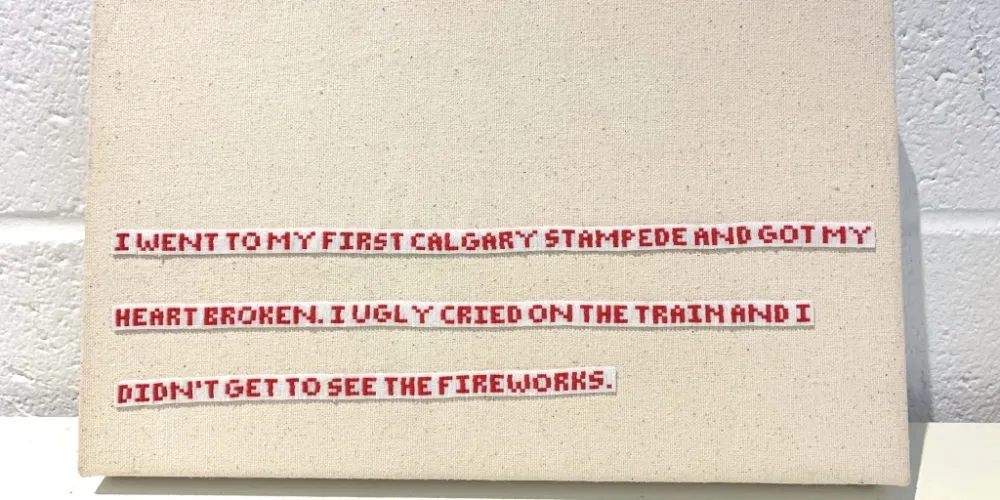 I WENT TO MY FIRST CALGARY STAMPEDE AND GOT MY
HEART BROKEN. I UGLY CRIED ON THE TRAIN AND I
DIDN'T GET TO SEE THE FIREWORKS.